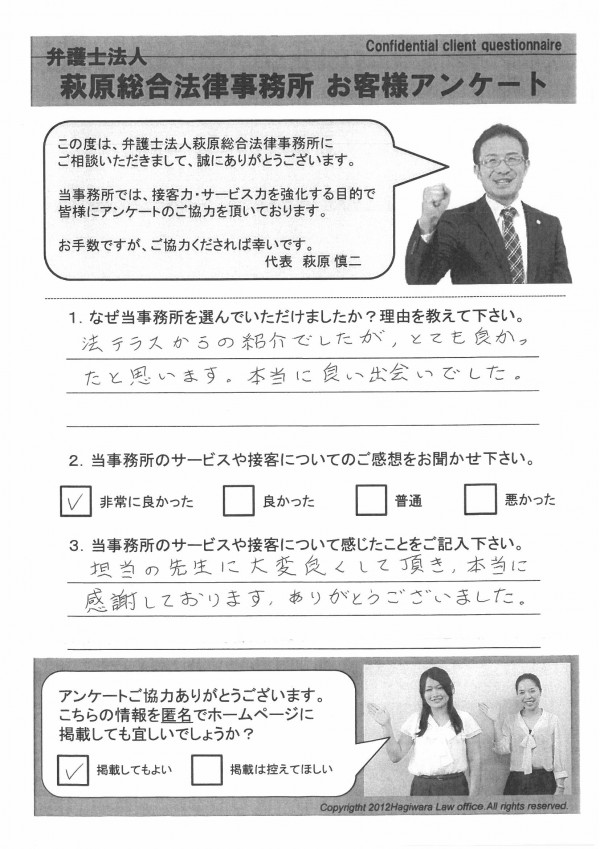 Confidential client questionnaire
弁護士法人
萩原総合法律事務所 お客様アンケート
この度は、弁護士法人萩原総合法律事務所に
ご相談いただきまして、誠にありがとうございます。
当事務所では、接客力・サービス力を強化する目的で
皆様にアンケートのご協力を頂いております。
お手数ですが、ご協力くだされば幸いです。
代表 萩原 慎二
1. なぜ当事務所を選んでいただけましたか？理由を教えて下さい。
法テラスからの紹介でしたが，とても良かっ
たと思います。本当に良い出会いでした。
2. 当事務所のサービスや接客についてのご感想をお聞かせ下さい。
✓ 非常に良かった 良かった 普通 悪かった
3. 当事務所のサービスや接客について感じたことをご記入下さい。
担当の先生に大変良くして頂き，本当に
感謝しております，ありがとうございました。
アンケートご協力ありがとうございます。
こちらの情報を匿名でホームページに
掲載しても宜しいでしょうか？
✓ 掲載してもよい 掲載は控えてほしい
Copyrigtht 2012Hagiwara Law office.All rights reserved.